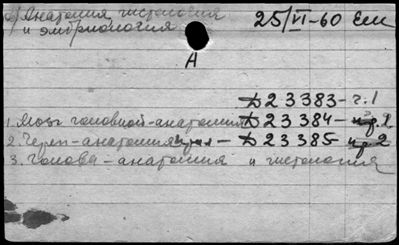 а) Анатомия гистология 25/VI-60
и эмбриология
А
Д23383-ч.1
1. Мозг головной-анатомия Д23384-
2. Череп-анатомия Д23385-
3. Голова-анатомия и гистология